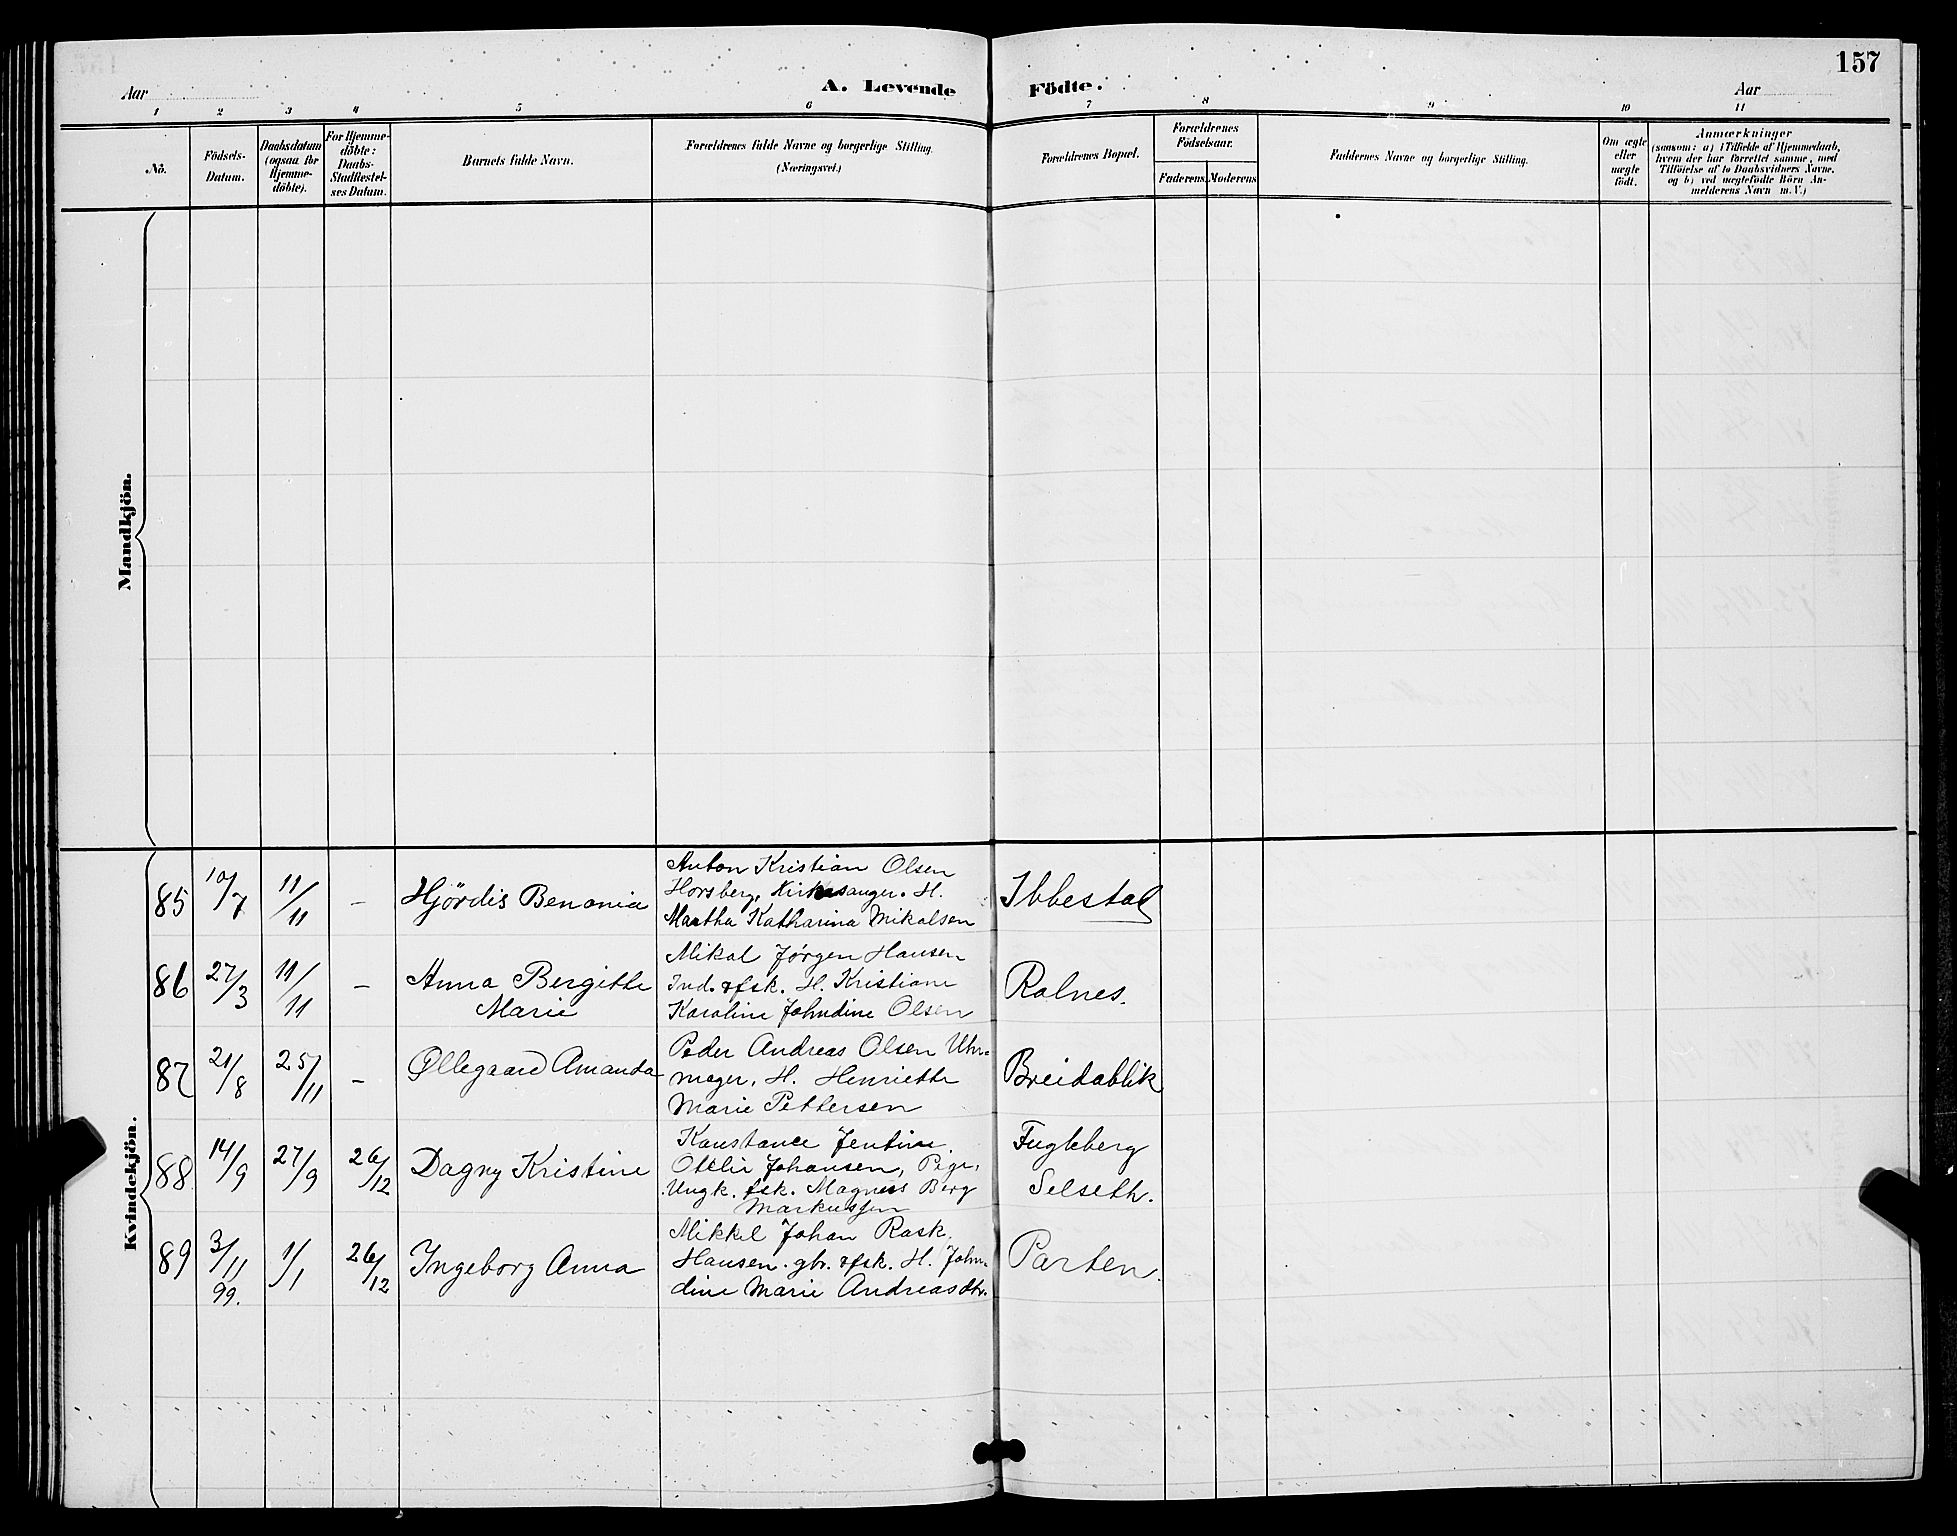 157
Aar
A. Levende Födte.
Aar
1 2 3 4 5 6 7 8 9 10 11
No.
Födsels-
Datum.
Daabsdatum
(ogsaa for
Hjemme-
döbte).
For Hjemme-
döbte:
Daabs-
Stadfestel-
ses Datum.
Barnets fulde Navn.
Forældrenes fulde Navne og borgerlige Stilling.
(Næringsvei.)
Forældrenes Bopæl.
Forældrenes
Födselsaar.
Faderens. Moderens.
Faddernes Navne og borgerlige Stilling.
Om ægte
eller
uægte
födt.
Anmærkninger
(saasom: a) i Tilfælde af Hjemmedaab,
hvem der har forrettet samme, med
Tilföielse af to Daabsvidners Navne.
og b) ved uægtefödte Börn An-
melderens Navn m. V.)
Mandkjön.
Kvindekjön.
85 10/7 11/11 - Hjördis Benonia
Anton Kristian Olsen
Horsberg, Kirkesanger. H.
Martha Katharina Mikalsen
Ibbestad
86 27/3 11/11 - Anna Bergitte
Marie
Mikal Jörgen Hansen
Ind. & fsk. H. Kristiane
Karoline Johndine Olsen
Rolnes.
87 21/8 25/11 - Øllegaard Amanda
Peder Andreas Olsen Uhr-
mager, H. Henriette
Marie Pettersen
Breidablik
88 14/9 27/9 26/12 Dagny Kristine
Konstance Jentine
Otelie Johansen, Pige,
Ungk. fsk. Magnus Berg
Markussen
Fugleberg
Selseth.
89 3/11 99. 1/1 26/12 Ingeborg Anna
Mikkel Johan Rask
Hansen. gbr. & fsk. H. John-
dine Marie Andreasdtr.
Parten.